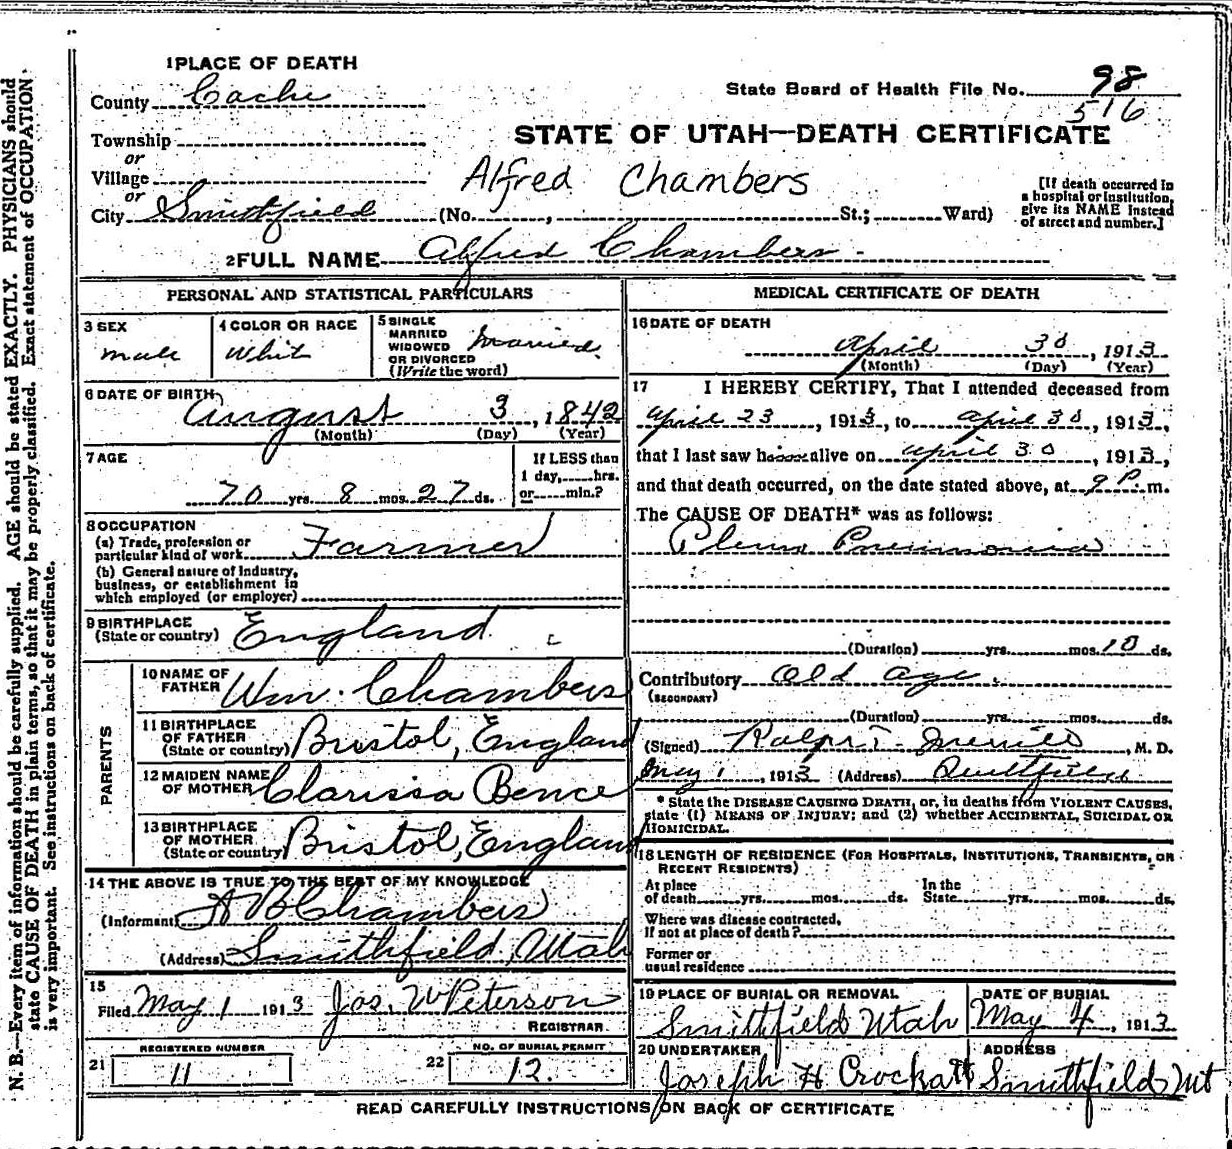 1 PLACE OF DEATH
County Cache
State Board of Health File No. 98
516
Township
or
Village
or
City Smithfield (No. , St.; Ward)
STATE OF UTAH—DEATH CERTIFICATE
Alfred Chambers
[If death occurred in
a hospital or institution,
give its NAME instead
of street and number.]
2 FULL NAME Alfred Chambers
PERSONAL AND STATISTICAL PARTICULARS
3 SEX
male
4 COLOR OR RACE
Whit
5 SINGLE
MARRIED
WIDOWED
OR DIVORCED
(Write the word)
Married
6 DATE OF BIRTH
August 3, 1842
(Month) (Day) (Year)
7 AGE
70 yrs. 8 mos. 27 ds.
If LESS than
1 day, hrs.
or min.?
8 OCCUPATION
(a) Trade, profession or
particular kind of work Farmer
(b) General nature of Industry,
business, or establishment in
which employed (or employer)
9 BIRTHPLACE
(State or country) England
PARENTS
10 NAME OF
FATHER Wm. Chambers
11 BIRTHPLACE
OF FATHER
(State or country) Bristol, England
12 MAIDEN NAME
OF MOTHER Clarissa Bence
13 BIRTHPLACE
OF MOTHER
(State or country) Bristol, England
14 THE ABOVE IS TRUE TO THE BEST OF MY KNOWLEDGE
(Informant) A B Chambers
(Address) Smithfield, Utah
15
Filed May 1 1913 Jos. W Peterson
REGISTRAR.
21
REGISTERED NUMBER
11
22
NO. OF BURIAL PERMIT
12.
MEDICAL CERTIFICATE OF DEATH
16 DATE OF DEATH
April 30, 1913
(Month) (Day) (Year)
17 I HEREBY CERTIFY, That I attended deceased from
April 23, 1913, to April 30, 1913,
that I last saw h alive on April 30, 1913,
and that death occurred, on the date stated above, at 9 P. m.
The CAUSE OF DEATH* was as follows:
Pleuro Pneumonia
(Duration) yrs. mos. 10 ds.
Contributory Old age.
(SECONDARY)
(Duration) yrs. mos. ds.
(Signed) Merrill, M. D.
May 1, 1913 (Address) Smithfield
* State the DISEASE CAUSING DEATH, or, in deaths from VIOLENT CAUSES,
state (1) MEANS OF INJURY; and (2) whether ACCIDENTAL, SUICIDAL OR
HOMICIDAL.
18 LENGTH OF RESIDENCE (FOR HOSPITALS, INSTITUTIONS, TRANSIENTS, OR
RECENT RESIDENTS)
At place
of death yrs. mos. ds.
In the
State yrs. mos. ds.
Where was disease contracted,
If not at place of death?
Former or
usual residence
19 PLACE OF BURIAL OR REMOVAL
Smithfield Utah
DATE OF BURIAL
May 4, 1913
20 UNDERTAKER
Joseph H Crockatt
ADDRESS
Smithfield Ut
READ CAREFULLY INSTRUCTIONS ON BACK OF CERTIFICATE
N. B.—Every item of information should be carefully supplied. AGE should be stated EXACTLY. PHYSICIANS should
state CAUSE OF DEATH in plain terms, so that it may be properly classified. Exact statement of OCCUPATION
is very important. See instructions on back of certificate.